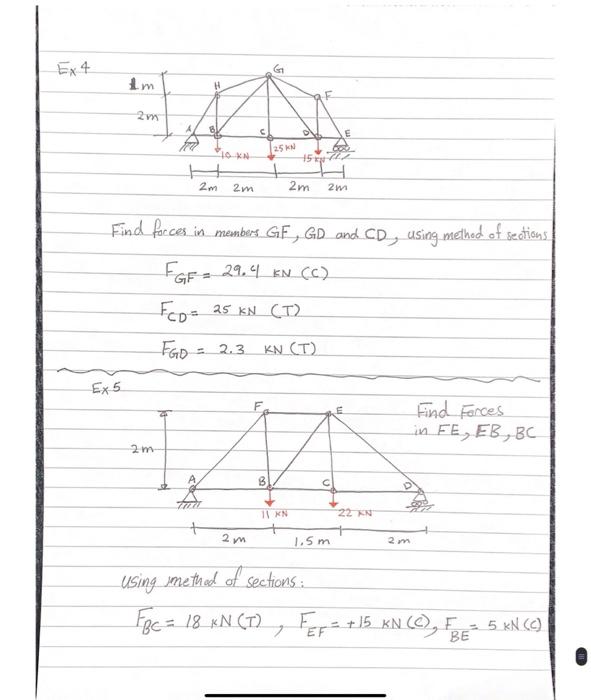 Ex 4
1m
2m
G
H
F
A
B
C
D
E
10 KN
25 KN
15 KN
2m 2m 2m 2m
Find forces in members GF, GD and CD, using method of sections
F_GF = 29.4 KN (C)
F_CD = 25 KN (T)
F_GD = 2.3 KN (T)
Ex 5
Find Forces
in FE, EB, BC
F
E
2m
A
B
C
D
11 KN
22 KN
2m
1.5m
2m
using method of sections:
F_BC = 18 KN (T), F_EF = +15 KN (C), F_BE = 5 KN (C)